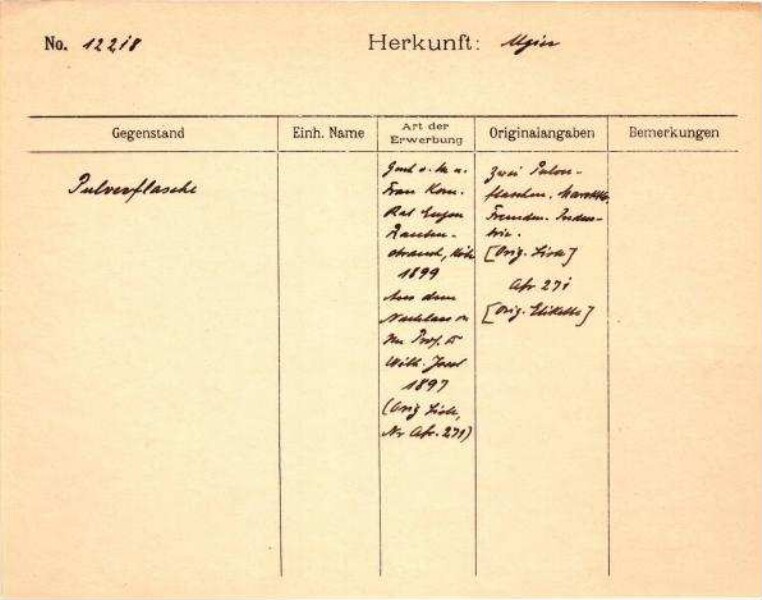 No. 12218 Herkunft:
Gegenstand Einh. Name Art der Erwerbung Originalangaben Bemerkungen
Pulverflasche
Frau Kom.
Rat Eugen
Rauten-
strauch,
1899
Aus dem
Nachlass
Prof. Dr
Wilh. Joest
1897
(Orig. Liste,
Nr Afr. 271)
Zwei Pulver-
flaschen. Marokko.
Fremden-Indus-
trie.
[Orig. Liste]
Afr 271
[Orig. Etikette]